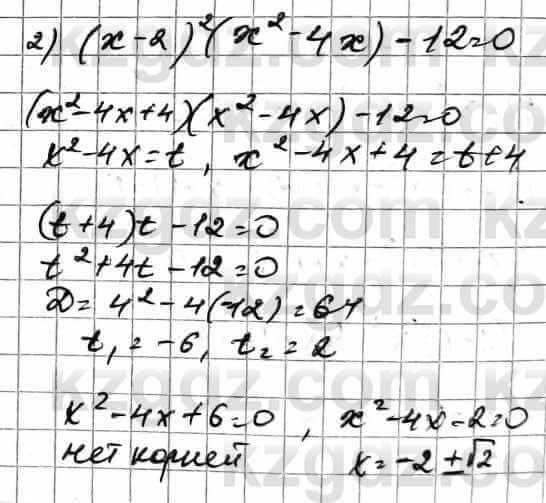 2) (x-2)²(x²-4x)-12=0
(x²-4x+4)(x²-4x)-12=0
x²-4x=t, x²-4x+4=t+4
(t+4)t-12=0
t²+4t-12=0
D=4²-4(-12)=64
t₁=-6, t₂=2
x²-4x+6=0, x²-4x-2=0
нет корней x=-2±√2